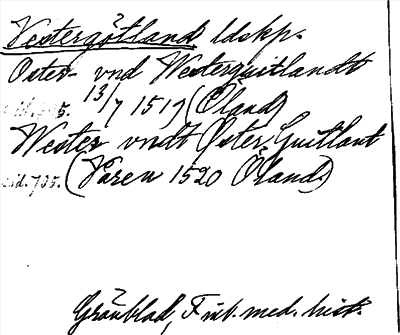 Vestergötland ldskp.
Oster- vnd Westerguitlandt
13/7 1519 (Öland)
Wester vndt Öster Guitlant
sid. 735. (Våren 1520 Öland.)
Grönblad, F nt. med. hist.